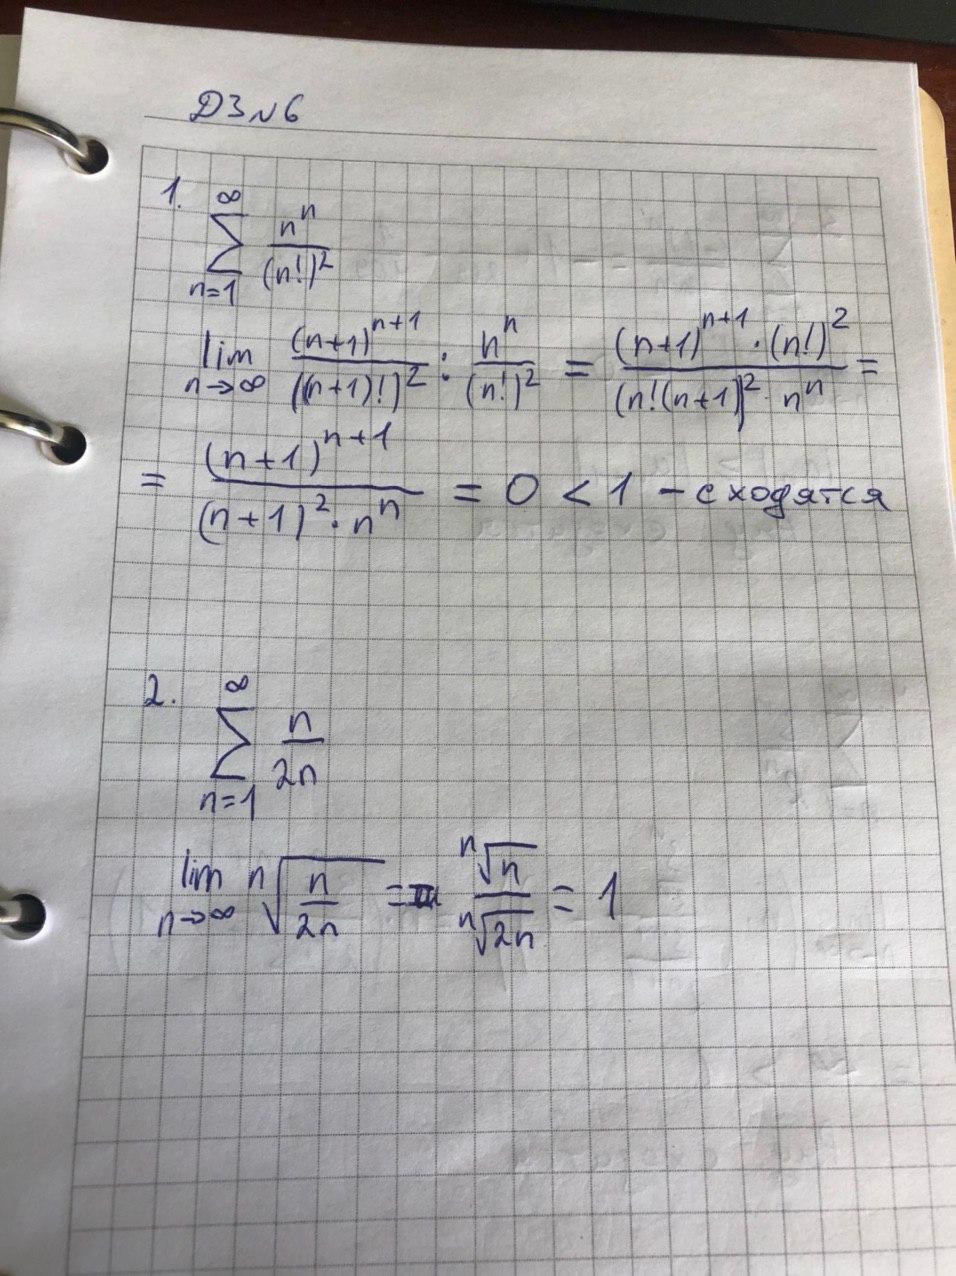 ДЗ №6
1. ∑_{n=1}^{∞} n^n/(n!)^2
lim_{n→∞} (n+1)^{n+1}/((n+1)!)^2 : n^n/(n!)^2 = (n+1)^{n+1}·(n!)^2/(n!(n+1))^2· n^n =
= (n+1)^{n+1}/(n+1)^2·n^n = 0 < 1 – сходятся
2. ∑_{n=1}^{∞} n/2n
lim_{n→∞} ⁿ√(n/2n) = ⁿ√n/ⁿ√2n = 1